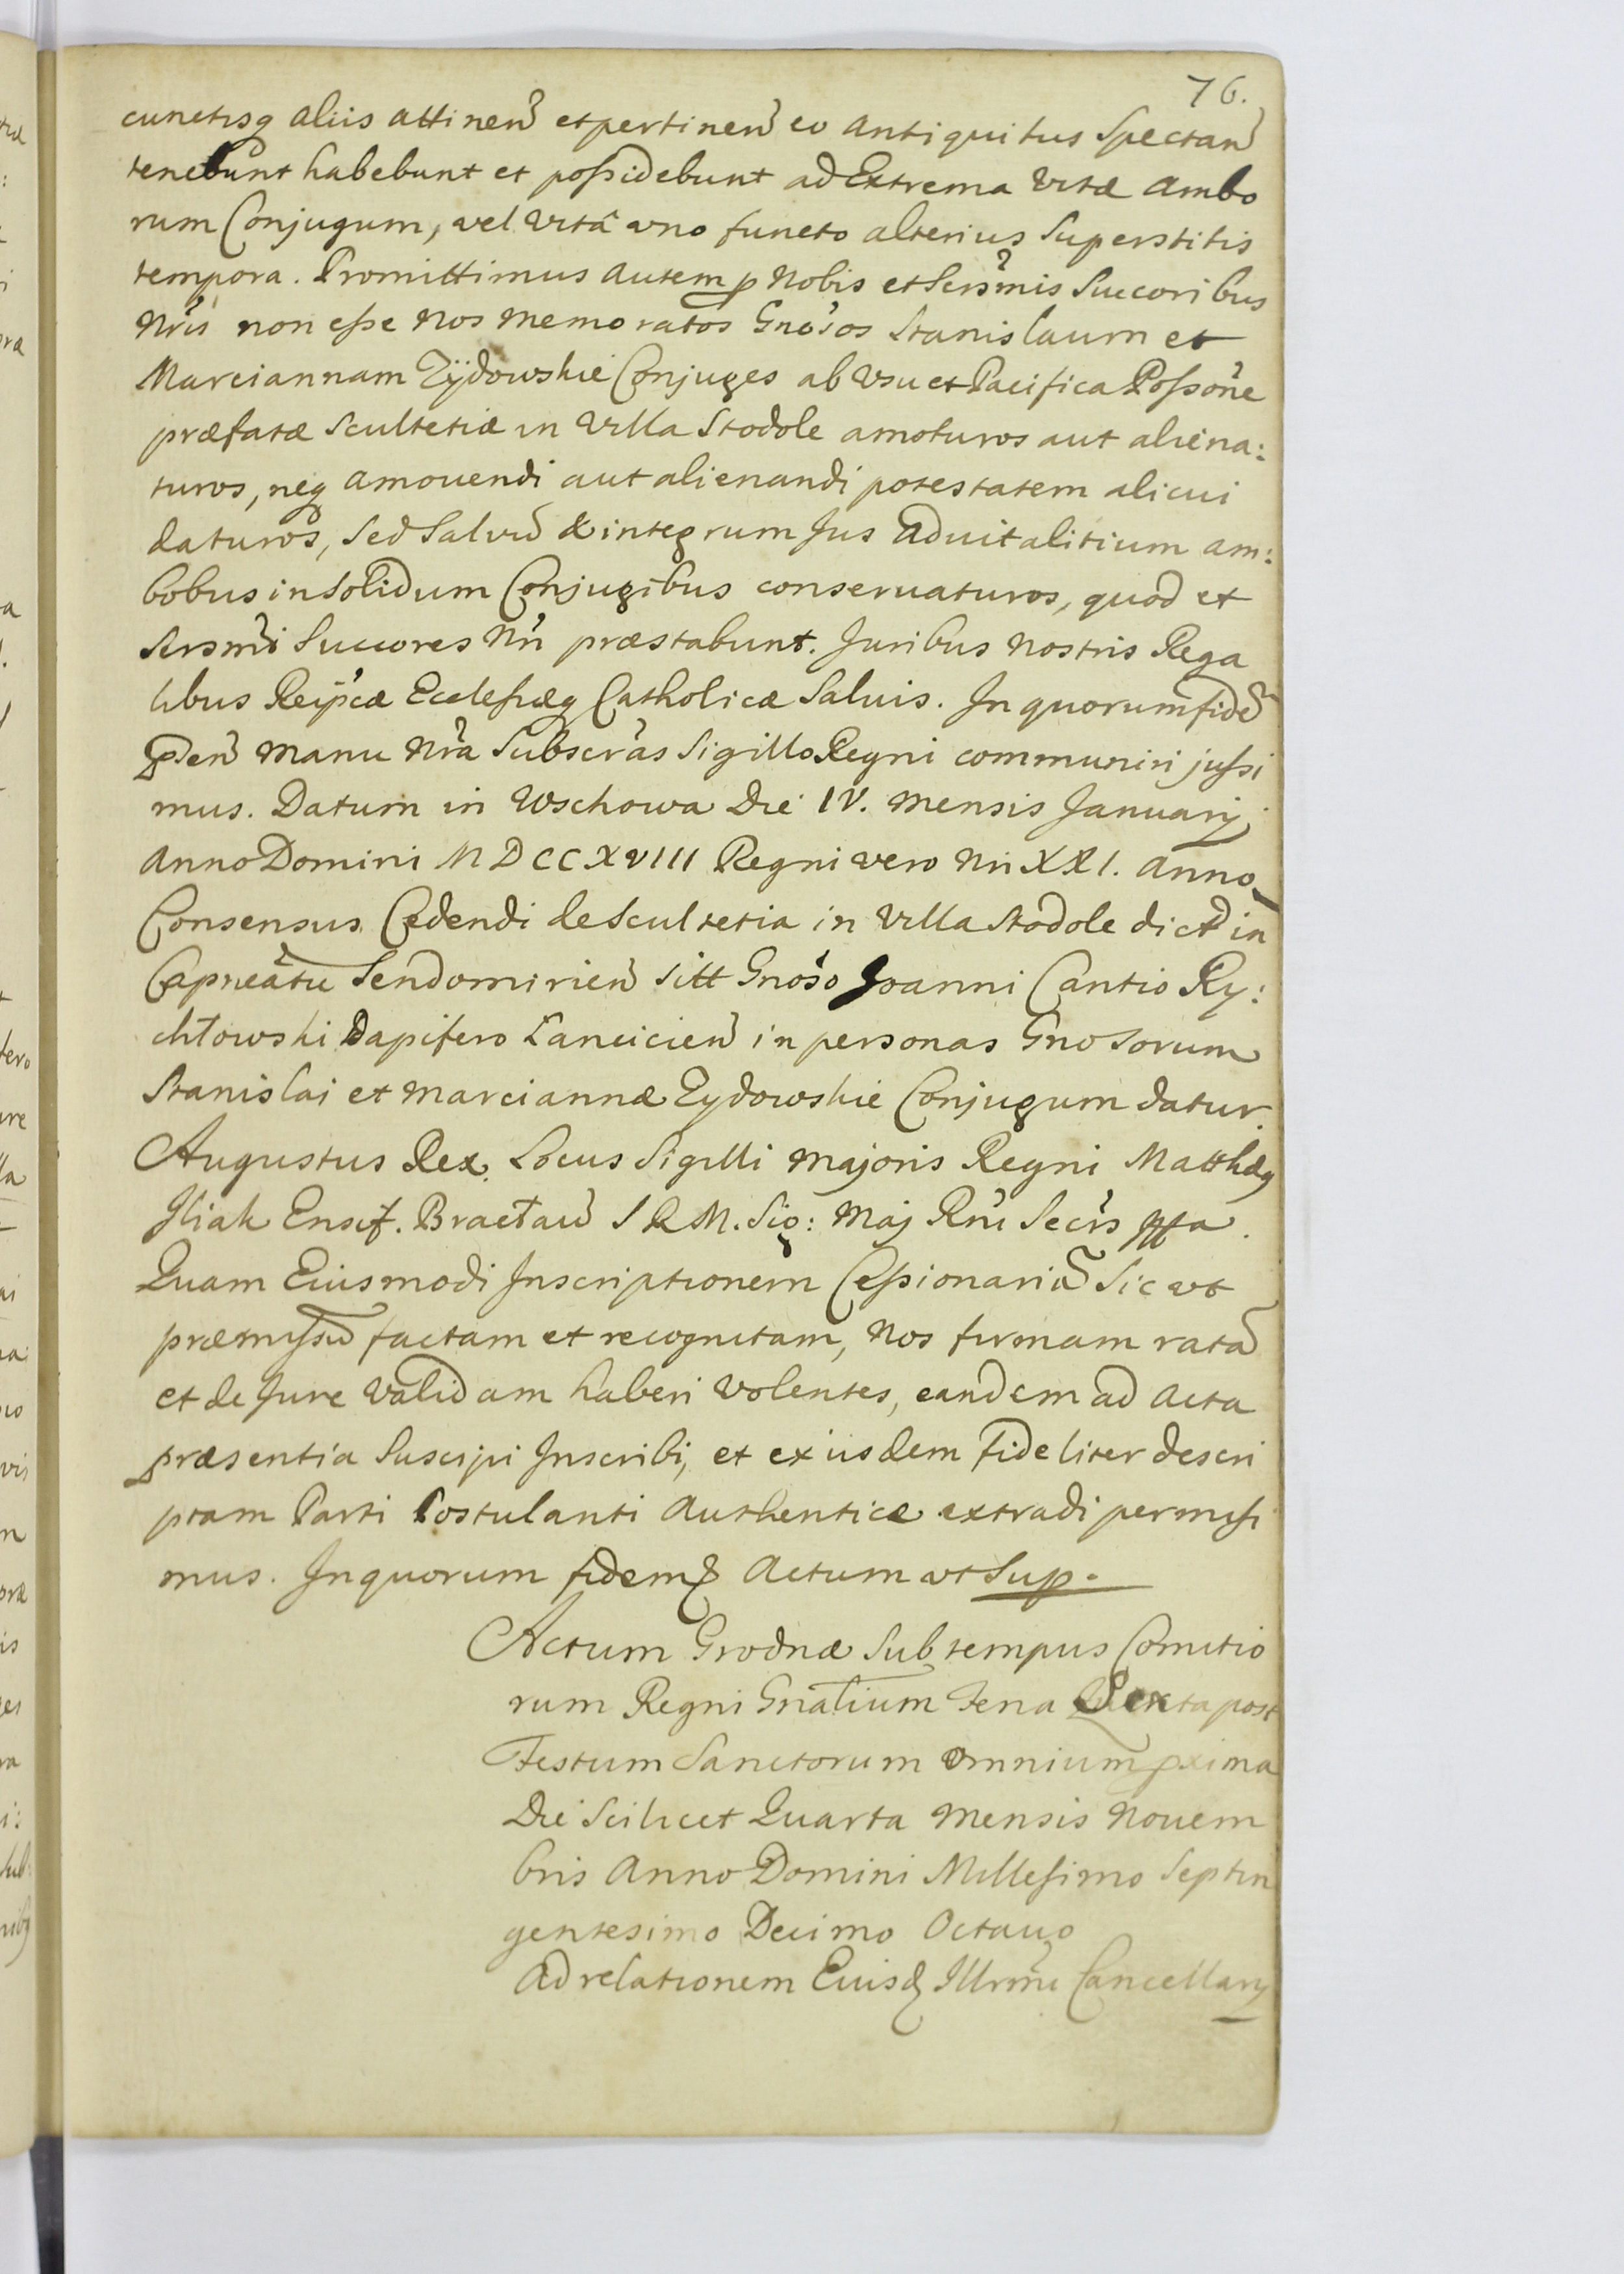 76.
cunctisq aliis attinen̄ et pertinen̄ eo antiquitus Spectan̄
tenebunt habebunt et poſsidebunt ad Extrema Vitæ ambo
rum Conjugum, vel Vitâ uno functo alterius Superstitis
tempora. Promittimus autem p Nobis et Sersmis Succoribus
Nris non eſse Nos memoratos Gnosos Stanislaum et
Marciannam Zÿdowskie Conjuges ab Usu et Pacifica Poſsone
præfatæ Scultetiæ in Villa Stodole amoturos aut aliena:
turos, neq amouendi aut alienandi potestatem alicui
daturos, Sed Salvū & integrum Jus Aduitalitium am:
bobus insolidum Conjugibus conseruaturos, quod et
Sersmi Succores Nri præstabunt. Juribus nostris Rega
libus Reipcæ Ecclesiæq Catholicæ Saluis. In quorum fidē
Pñten̄ Manu Nra Subscras Sigillo Regni communiri juſsi
mus. Datum in Wschowa Die IV. mensis Januarij
Anno Domini MDCCXVIII Regni vero Nri XXI. anno
Consensus Cedendi de Scultetia in Villa Stodole dicta in
Capneatu Sendomirien̄ Sitt Gnoso Joanni Cantio Ry:
chłowski Dapifero Lancicien̄ in personas Gnosorum
Stanislai et Marciannæ Zydowskie Conjugum datur.
Augustus Rex. Locus Sigilli Majoris Regni Matthæq
Iliak Ensif. Bracław̄ S R M. Sig: Maj Rni Secrs mppa.
Quam Eiusmodi Inscriptionem Ceſsionariā Sic ut
præmiſsū factam et recognitam, Nos firmam ratā
et de Jure Validam haberi Volentes, eandem ad Acta
præsentia Suscipi Inscribi, et ex iisdem fideliter descri
ptam Parti Postulanti Authentice extradi permiſi
mus. In quorum fidem Actum ut Sup.
Actum Grodnæ Sub tempus Comitio
rum Regni Gnalium Feria Sexta post
Festum Sanctorum Omnium pxima
Die Scilicet Quarta Mensis Nouem
bris Anno Domini Milleſimo Septin
gentesimo Decimo Octauo
Ad relationem Eiusd Illrmi Cancellarij